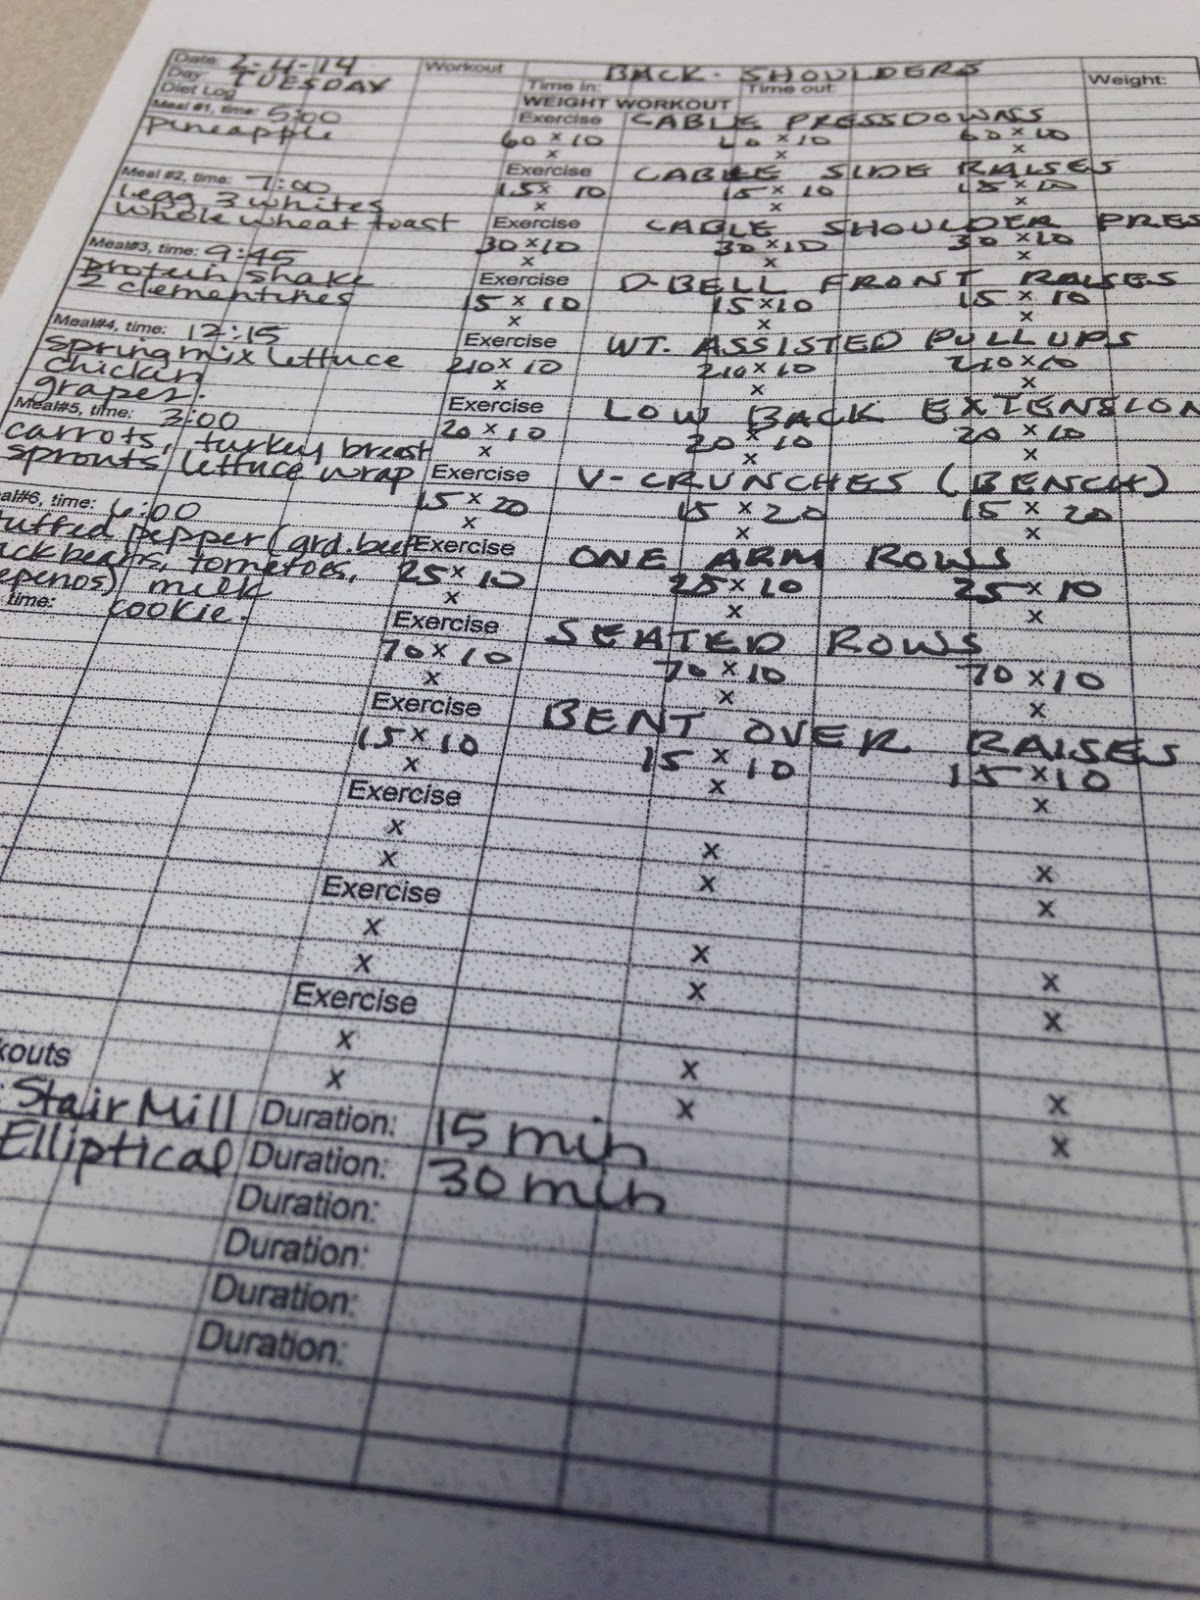 Date: 2-4-14 Workout BACK-SHOULDERS Weight:
Day: TUESDAY Time in: Time out:
Diet Log WEIGHT WORKOUT
Meal #1, time: 5:00 Exercise CABLE PRESSDOWNS
Pineapple 60 x 10 60 x 10 60 x 10
x x x
Meal #2, time: 7:00 Exercise CABLE SIDE RAISES
1 egg 3 whites 15 x 10 15 x 10 15 x 10
whole wheat toast x x x
Exercise CABLE SHOULDER PRES
Meal#3, time: 9:45 30 x 10 30 x 10 30 x 10
protein shake x x x
2 clementines Exercise D-BELL FRONT RAISES
15 x 10 15 x 10 15 x 10
Meal#4, time: 12:15 x x x
spring mix lettuce Exercise WT. ASSISTED PULLUPS
chicken 210 x 10 210 x 10 210 x 10
grapes. x x x
Meal#5, time: 3:00 Exercise LOW BACK EXTENSION
carrots, turkey breast 20 x 10 20 x 10 20 x 10
sprouts lettuce wrap x x x
Exercise V-CRUNCHES (BENCH)
al#6, time: 6:00 15 x 20 15 x 20 15 x 20
tuffed pepper (grd. beef x x x
ack beans, tometoes, Exercise ONE ARM ROWS
epenos) milk 25 x 10 25 x 10 25 x 10
time: cookie. x x x
Exercise SEATED ROWS
70 x 10 70 x 10 70 x 10
x x x
Exercise BENT OVER RAISES
15 x 10 15 x 10 15 x 10
x x x
Exercise
x x x
x x x
Exercise
x x x
x x x
Exercise
x x x
x x x
kouts
: Stair Mill Duration: 15 min
Elliptical Duration: 30 min
Duration:
Duration:
Duration:
Duration: